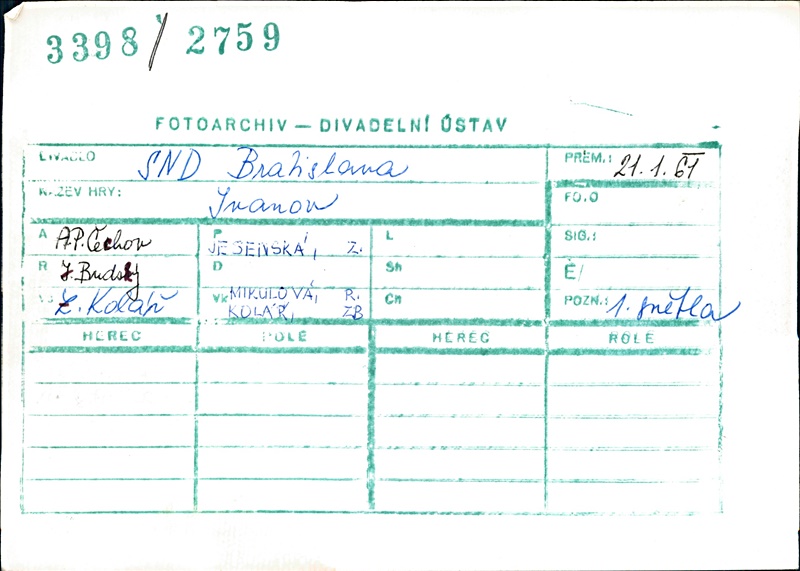 3398/2759
FOTOARCHIV — DIVADELNÍ ÚSTAV
DIVADLO SND Bratislava PREM.: 21.1.61
NÁZEV HRY: Ivanov FOTO
A A.P.Čechov P JESENSKÁ, Z. L SIG.:
R J. Budský D Sh Č/
VS Z. Kolář VK MIKULOVÁ, R. Ch POZN.: 1. světla
KOLÁŘ, ZB
HEREC ROLE HEREC ROLE